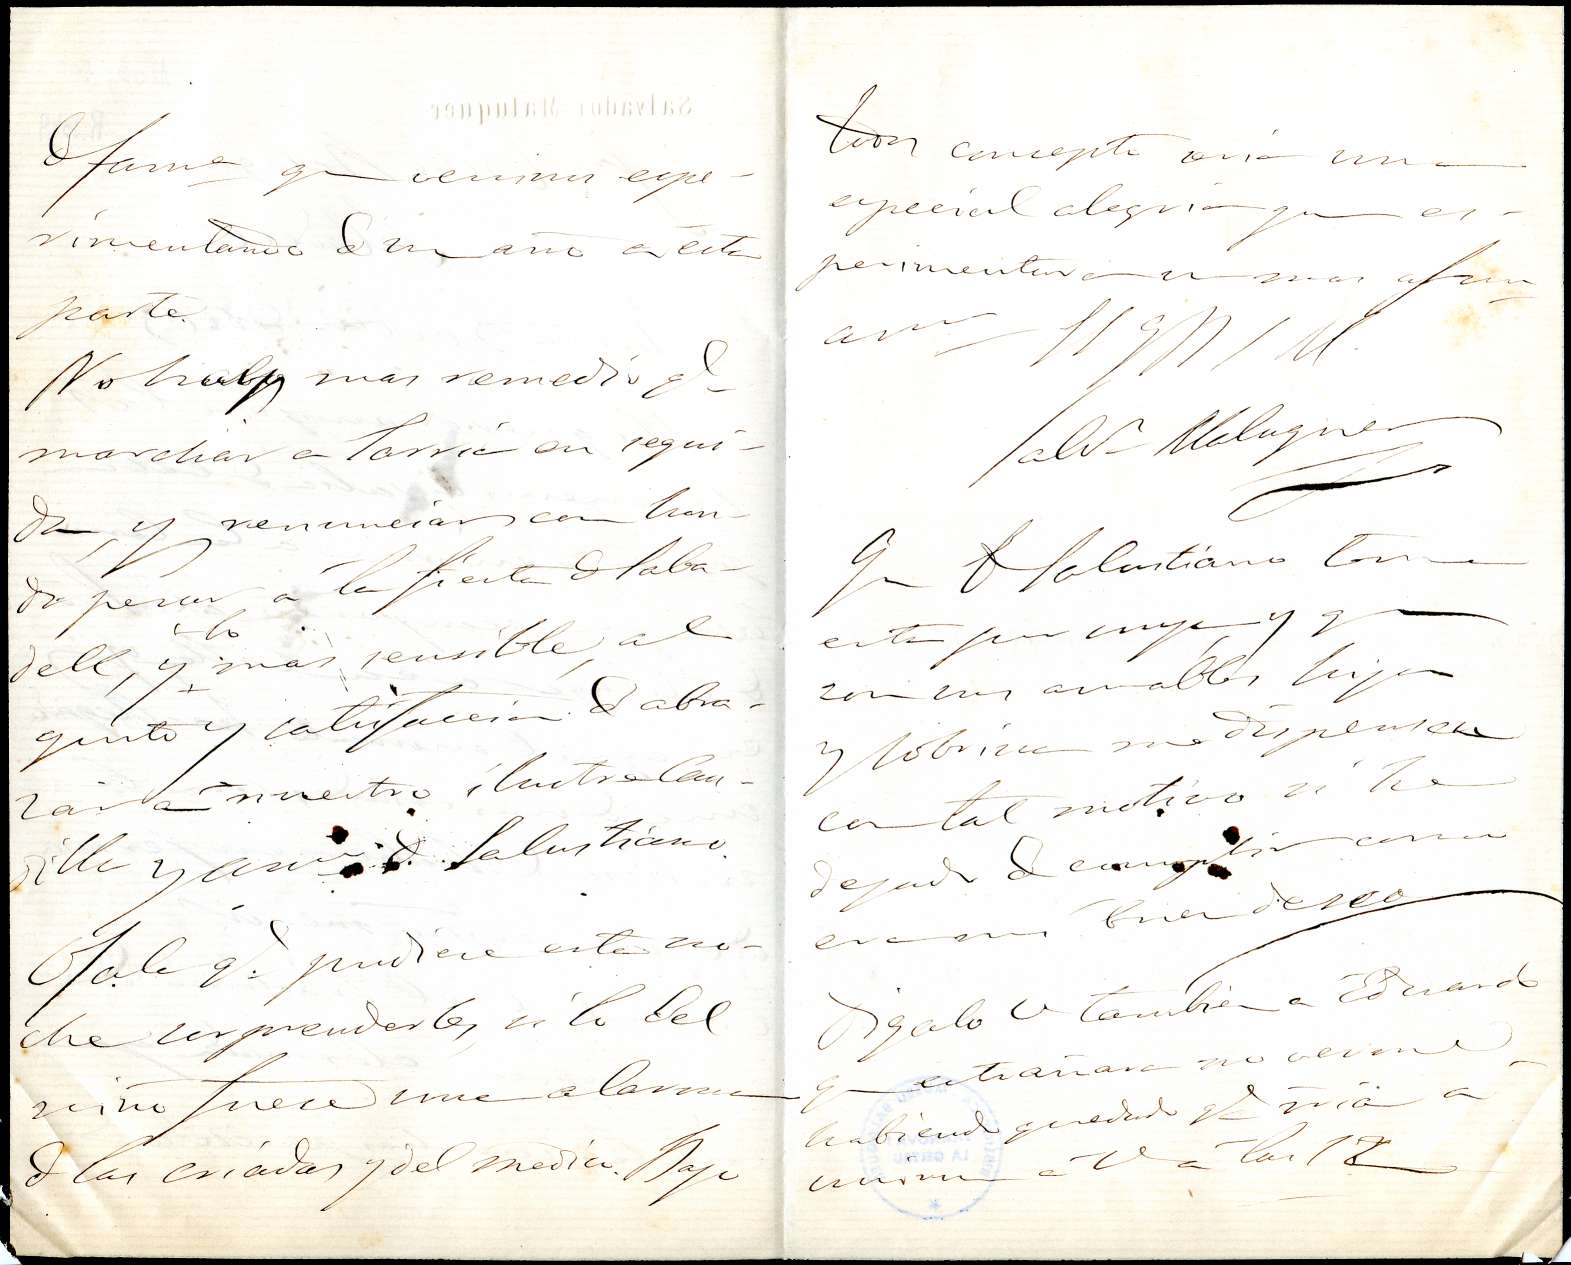 que venimos espe-
rimentando d un año a esta
parte.
No hay mas remedio qe
marchar a Sarria en segui-
da, y renunciar con hon-
do pesar a la fiesta d Saba-
dell, y lo mas sensible, al
gusto y satisfaccion d abra-
zar a nuestro ilustre Cau-
dillo y amo d. Salustiano.
Ojala qe pudiese esta no-
che sorprenderles, si lo del
niño fuese una alarma
d las criadas y del medico. Bajo
todos conceptos seria una
especial alegria que es-
perimentara su mas afmo
amo
Salvr Maluquer
Que D Salustiano tome
esta por suya, y que
con sus amables hijos
y sobrina me dispensen
con tal motivo si he
dejado d cumplir como
era mi buen deseo
Digalo V tambien a Eduardo
que estrañara no verme
habiendo quedado qe iria a
unirme a V a las 12